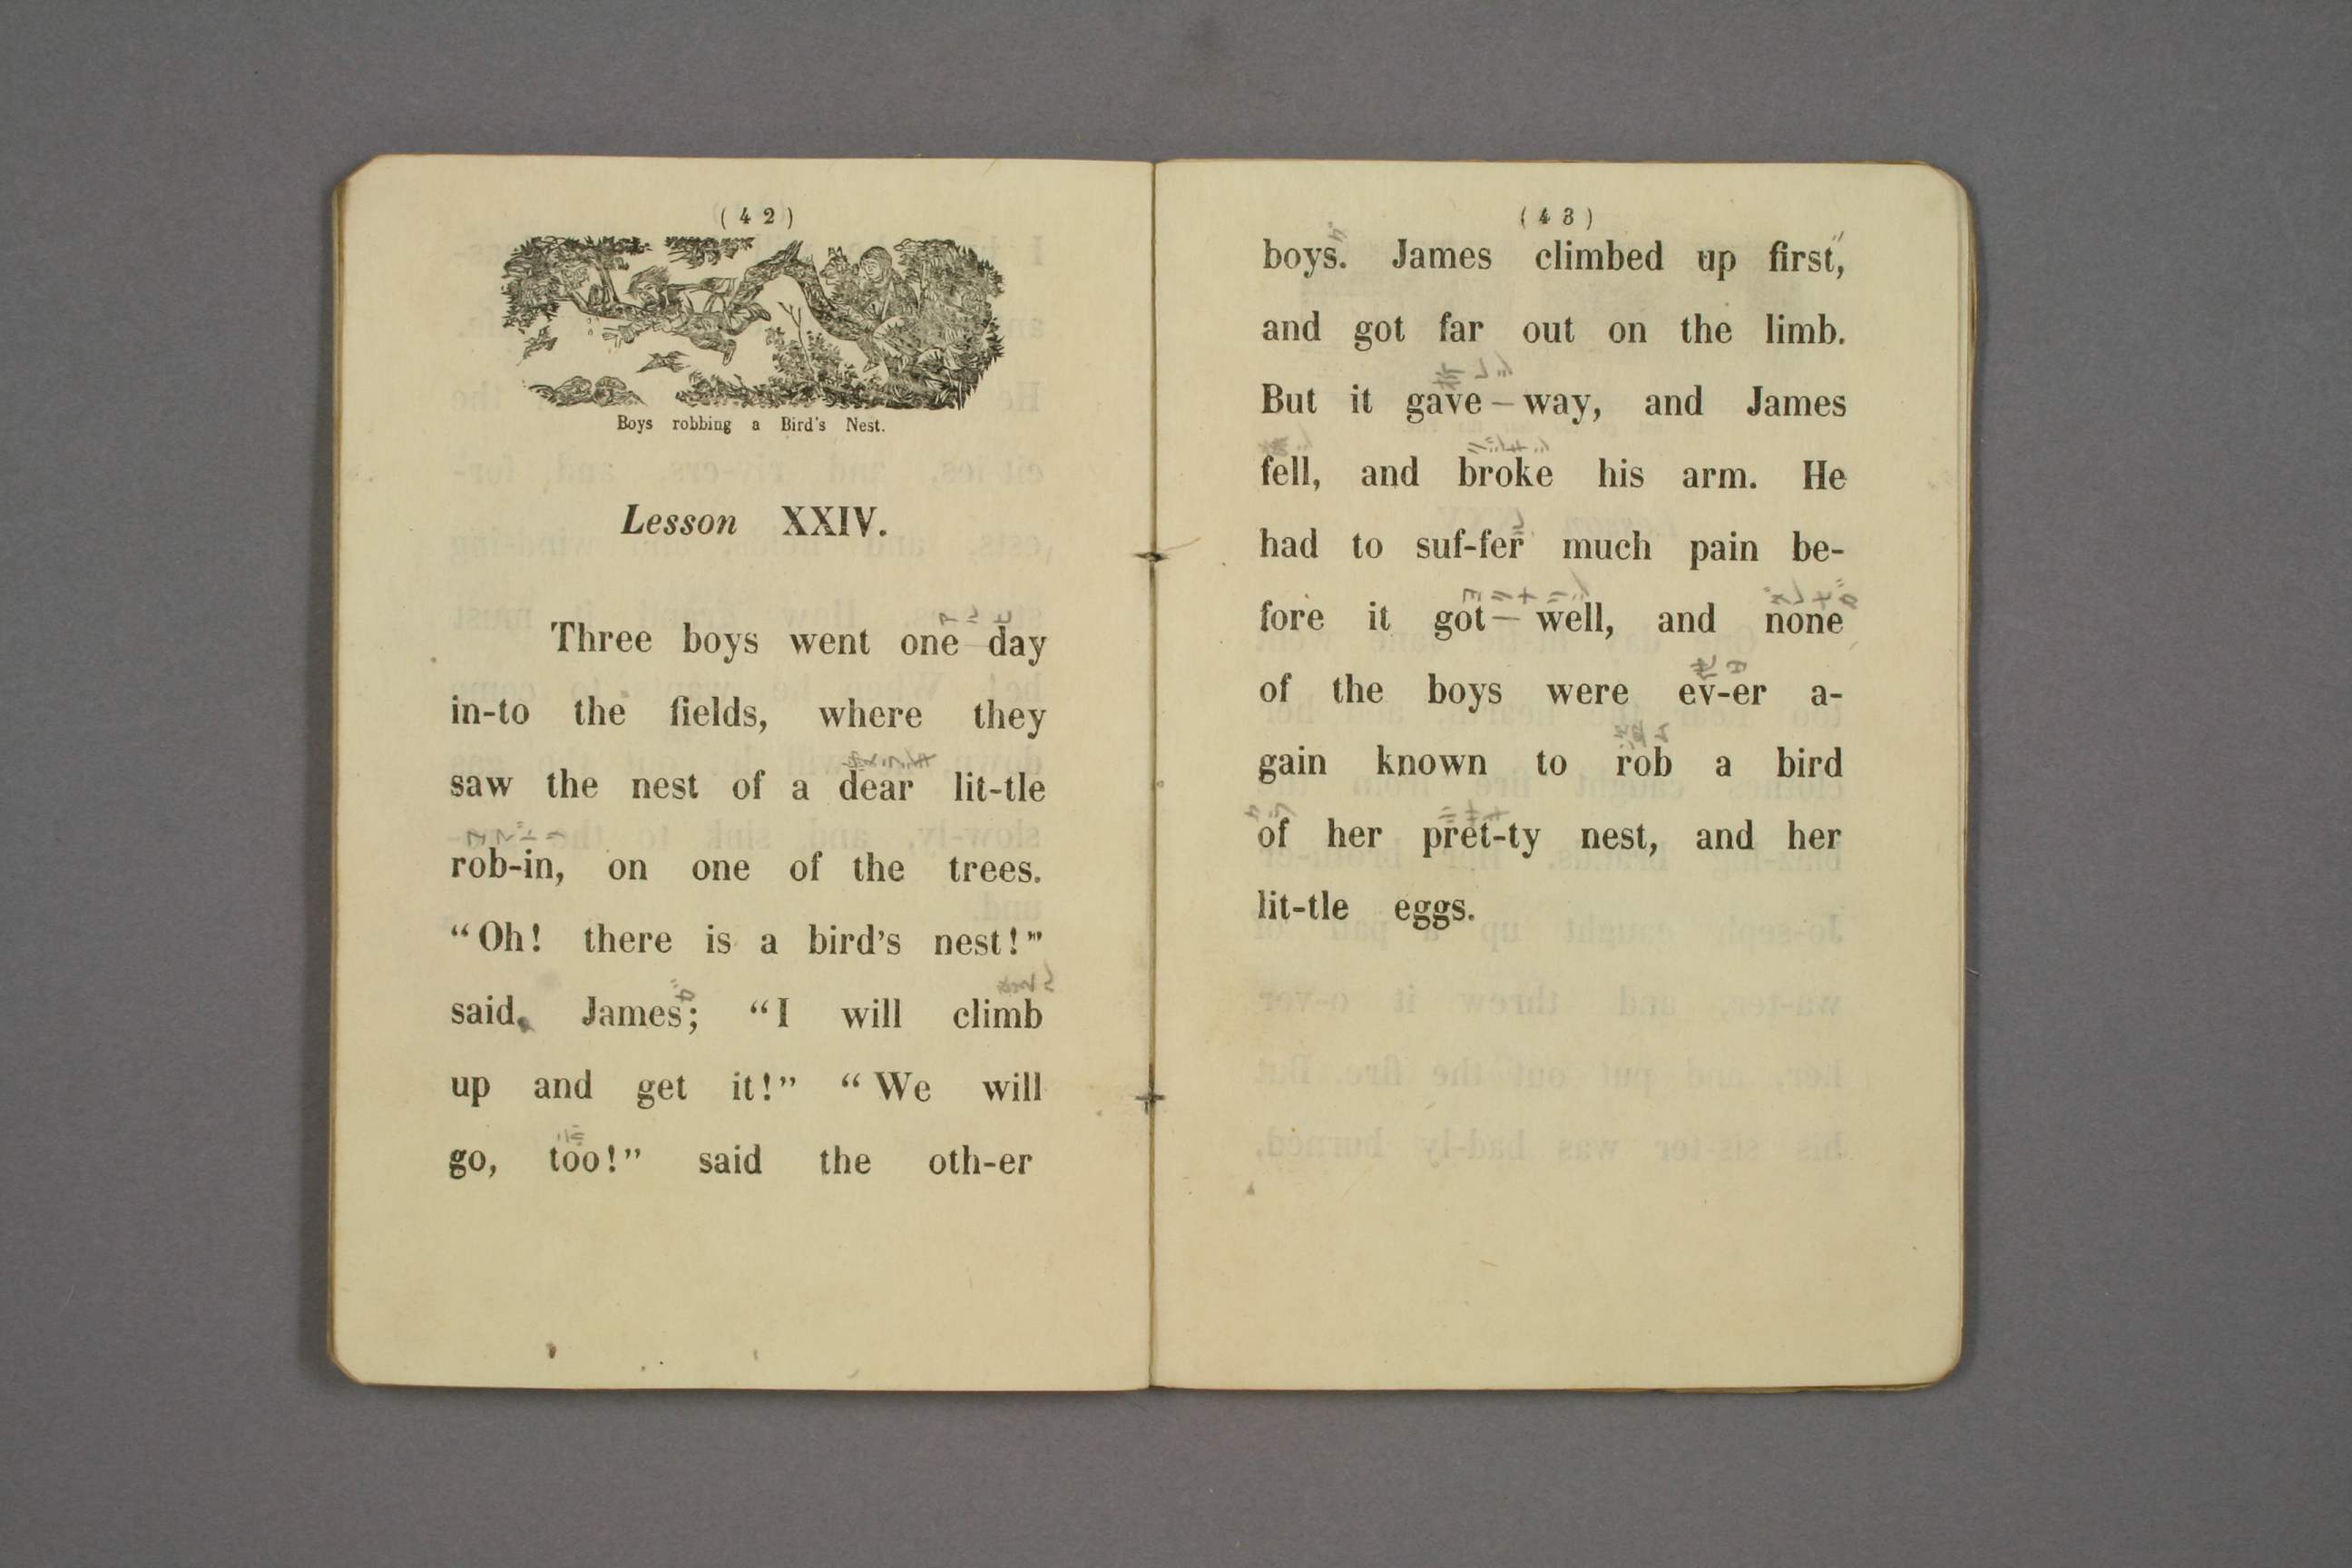 ( 4 2 )
Boys robbing a Bird's Nest.
Lesson XXIV.
Three boys went one day
in-to the fields, where they
saw the nest of a dear lit-tle
rob-in, on one of the trees.
“Oh! there is a bird’s nest!”
said, James; “I will climb
up and get it!” “We will
go, too!” said the oth-er
( 4 3 )
boys. James climbed up first,
and got far out on the limb.
But it gave – way, and James
fell, and broke his arm. He
had to suf-fer much pain be-
fore it got – well, and none
of the boys were ev-er a-
gain known to rob a bird
of her pret-ty nest, and her
lit-tle eggs.